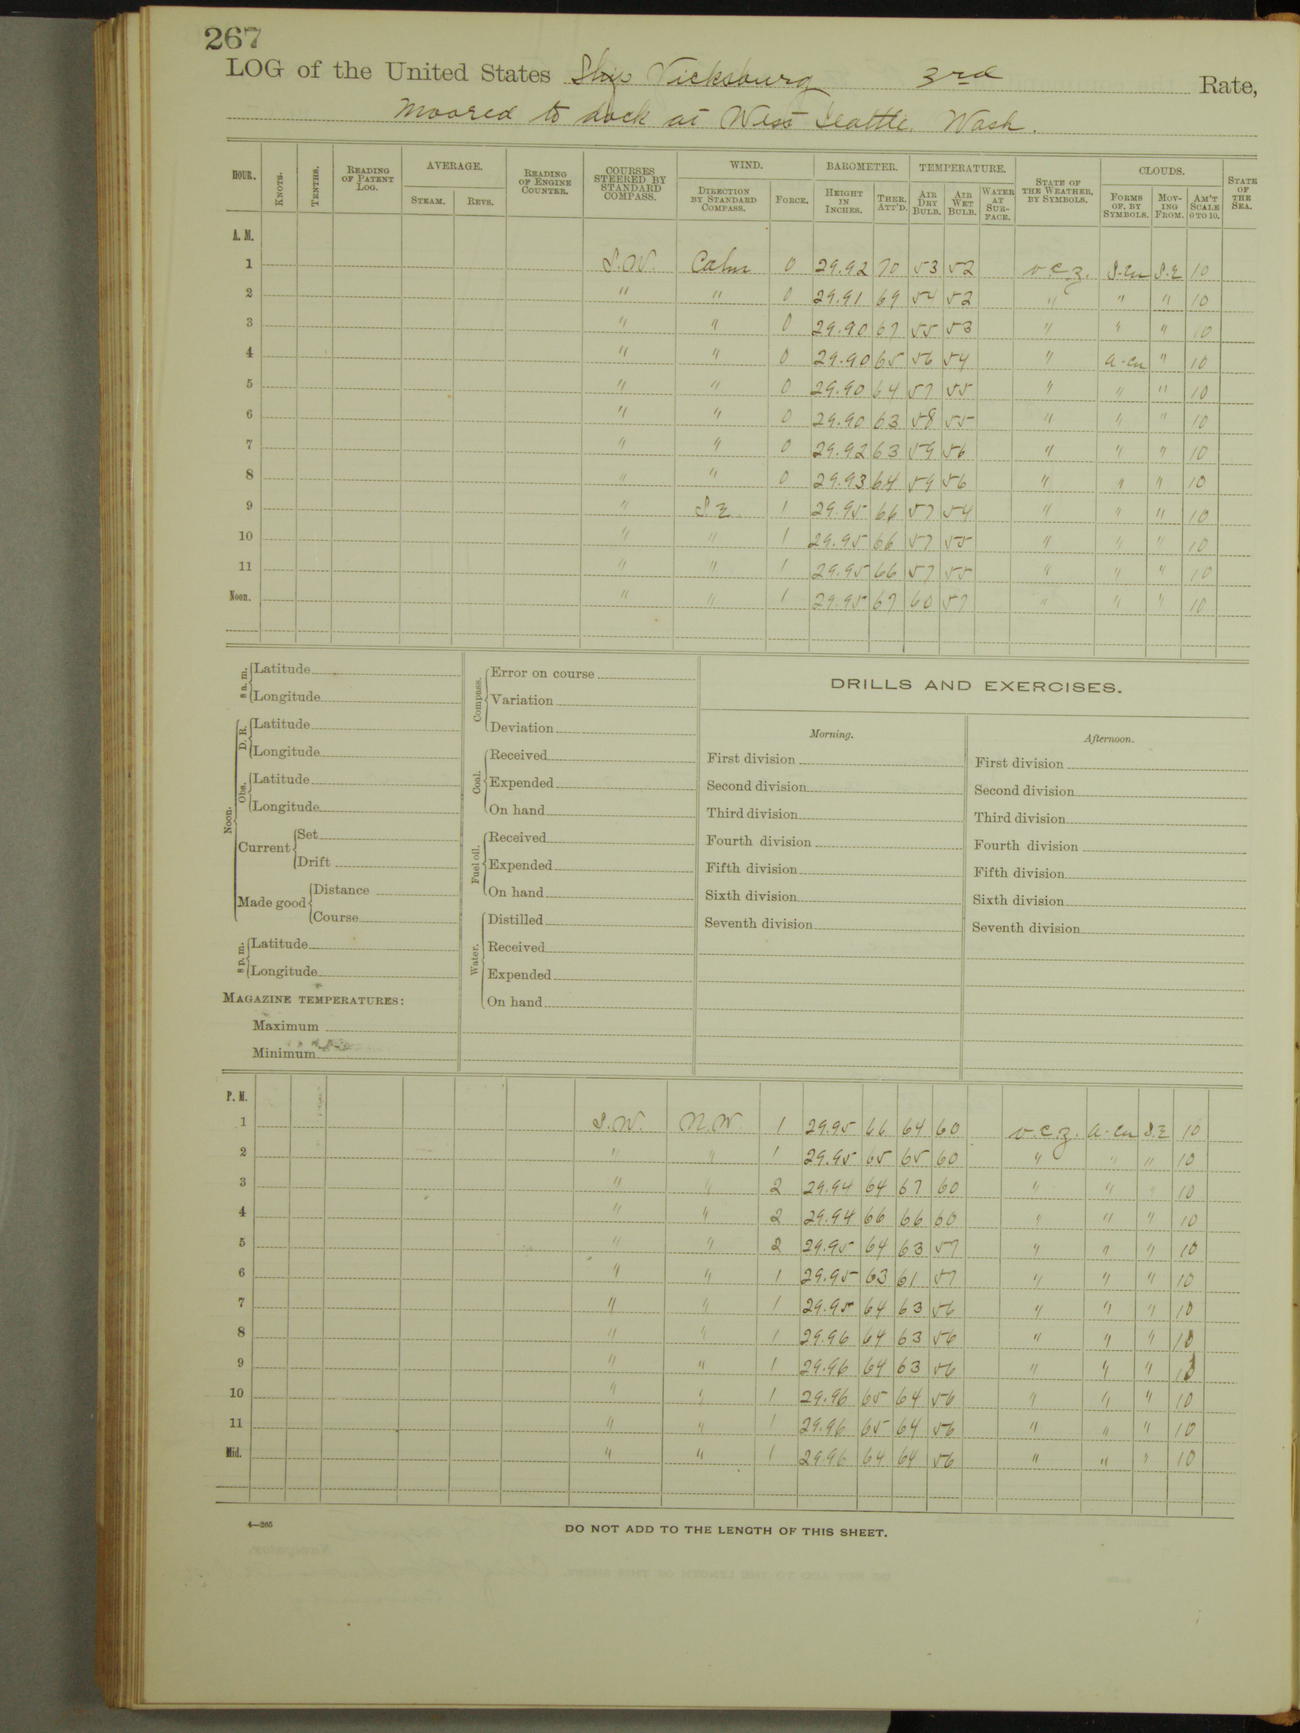 267
LOG of the United States Ship Vicksburg 3rd Rate,
Moored to dock at West Seattle, Wash.
HOUR. KNOTS. TENTHS. READING OF PATENT LOG. AVERAGE. STEAM. REVS. READING OF ENGINE COUNTER. COURSES STEERED BY STANDARD COMPASS. WIND. DIRECTION BY STANDARD COMPASS. FORCE. BAROMETER. HEIGHT IN INCHES. THER. ATT'D. TEMPERATURE. AIR DRY BULB. AIR WET BULB. WATER AT SURFACE. STATE OF THE WEATHER, BY SYMBOLS. CLOUDS. FORMS OF, BY SYMBOLS. MOVING FROM. AM'T SCALE 0 TO 10. STATE OF THE SEA.
A. M.
1 S.W. Calm 0 29.92 70 53 52 o.c.z. S.Cu S.E 10
2 " " 0 29.91 69 54 52 " " " 10
3 " " 0 29.90 67 55 53 " " " 10
4 " " 0 29.90 65 56 54 " A-Cu " 10
5 " " 0 29.90 64 57 55 " " " 10
6 " " 0 29.90 63 58 55 " " " 10
7 " " 0 29.92 63 59 56 " " " 10
8 " " 0 29.93 64 59 56 " " " 10
9 " S E 1 29.95 66 57 54 " " " 10
10 " " 1 29.95 66 57 55 " " " 10
11 " " 1 29.95 66 57 55 " " " 10
Noon. " " 1 29.95 67 60 57 " " " 10
8 a.m. Latitude
Longitude
Noon. D. R. Latitude
Longitude
Obs. Latitude
Longitude
Current Set
Drift
Made good Distance
Course
8 p.m. Latitude
Longitude
MAGAZINE TEMPERATURES:
Maximum
Minimum
Compass. Error on course
Variation
Deviation
Coal. Received
Expended
On hand
Fuel oil. Received
Expended
On hand
Water. Distilled
Received
Expended
On hand
DRILLS AND EXERCISES.
Morning.
First division
Second division
Third division
Fourth division
Fifth division
Sixth division
Seventh division
Afternoon.
First division
Second division
Third division
Fourth division
Fifth division
Sixth division
Seventh division
P. M.
1 S.W. N.W 1 29.95 66 64 60 o.c.z. A-Cu S.E 10
2 " " 1 29.95 65 65 60 " " " 10
3 " " 2 29.94 64 67 60 " " " 10
4 " " 2 29.94 66 66 60 " " " 10
5 " " 2 29.95 64 63 57 " " " 10
6 " " 1 29.95 63 61 57 " " " 10
7 " " 1 29.95 64 63 56 " " " 10
8 " " 1 29.96 64 63 56 " " " 10
9 " " 1 29.96 64 63 56 " " " 10
10 " " 1 29.96 65 64 56 " " " 10
11 " " 1 29.96 65 64 56 " " " 10
Mid. " " 1 29.96 64 64 56 " " " 10
4—265
DO NOT ADD TO THE LENGTH OF THIS SHEET.